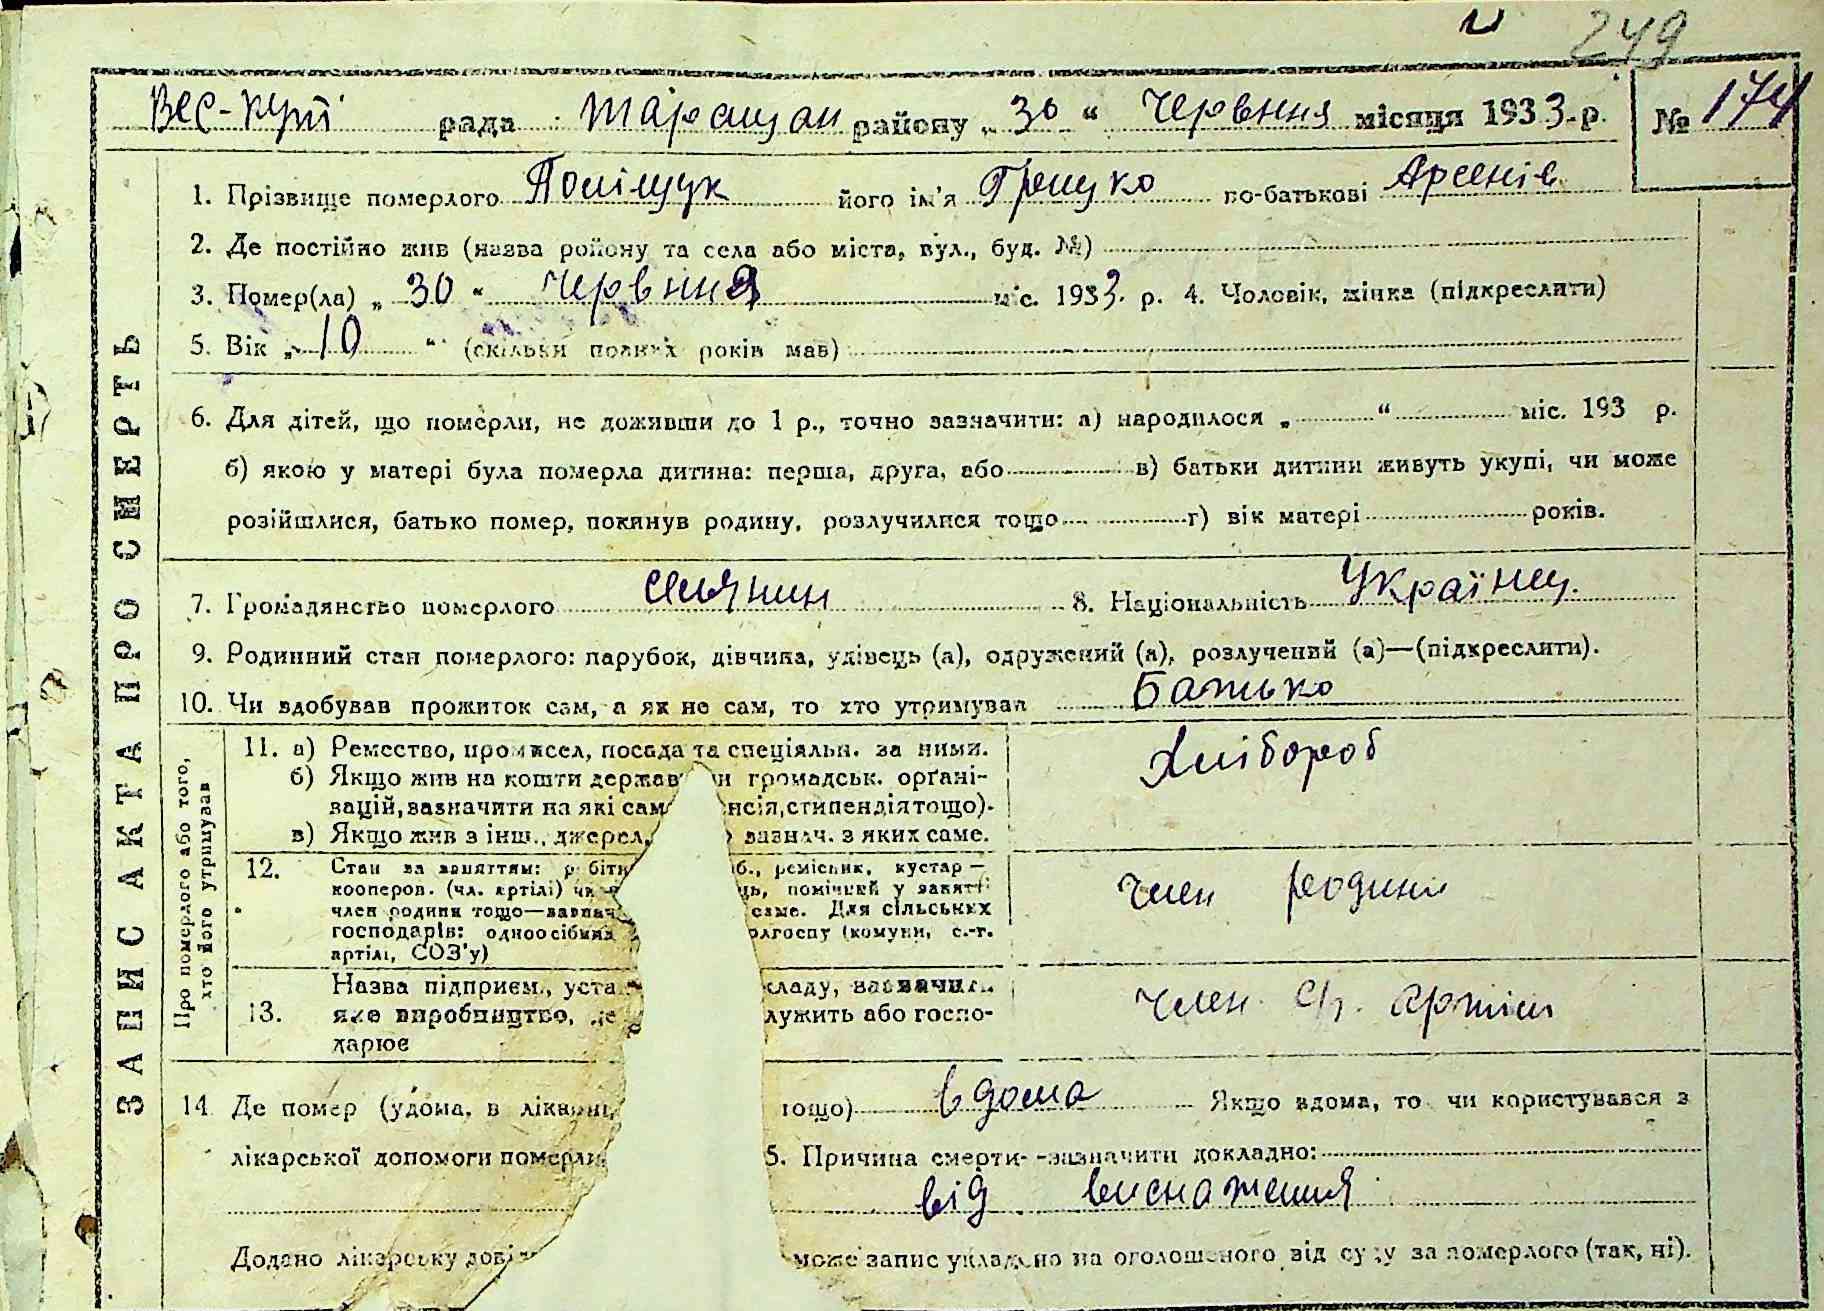 249
Вес-Кути рада Таращан району „ 30 “ Червння місяця 1933-р. № 174
ЗАПИС АКТА ПРО СМЕРТЬ
1. Прізвище померлого Поліщук його ім'я Грицько по-батькові Арсенів
2. Де постійно жив (назва району та села або міста, вул., буд. №)
3. Помер(ла) „ 30 “ Червння міс. 1933 р. 4. Чоловік, жінка (підкреслити)
5. Вік „ 10 “ (скільки повних років мав)
6. Для дітей, що померли, не доживши до 1 р., точно зазначити: а) народилося „ “ міс. 193 р.
б) якою у матері була померла дитина: перша, друга, або в) батьки дитини живуть укупі, чи може
розійшлися, батько помер, покинув родину, розлучилися тощо г) вік матері років.
7. Громадянство померлого селянин 8. Національність Українец.
9. Родинний стан померлого: парубок, дівчина, удівець (а), одружений (а), розлучений (а)—(підкреслити).
10. Чи здобував прожиток сам, а як не сам, то хто утримував Батько
Про померлого або того,
хто його утримував
11. а) Ремество, промисел, посада та спеціяльн. за ними. Хлібороб
б) Якщо жив на кошти держав ги громадськ. орґані-
зацій, зазначити на які сам нсія, стипендія тощо).
в) Якщо жив з інш., джерел, зазнач. з яких саме.
12. Стан за заняттям: робітн б., ремісник, кустар — Член родини
кооперов. (чл. артілі) чи ць, помічний у занятті
член родини тощо—зазнач саме. Для сільських
господарів: одноосібник олгоспу (комуни, с.-г.
артілі, СОЗ'у)
13. Назва підприєм., уста кладу, зазначити Член с/г. артіли
яке виробництво, де лужить або госпо-
дарює
14. Де помер (удома, в лікарні, тощо) вдома Якщо вдома, то чи користувався з
лікарської допомоги померли 5. Причина смерти--зазначити докладно:
від виснаження
Додано лікарську довід може запис укладено на оголошеного від суду за померлого (так, ні).